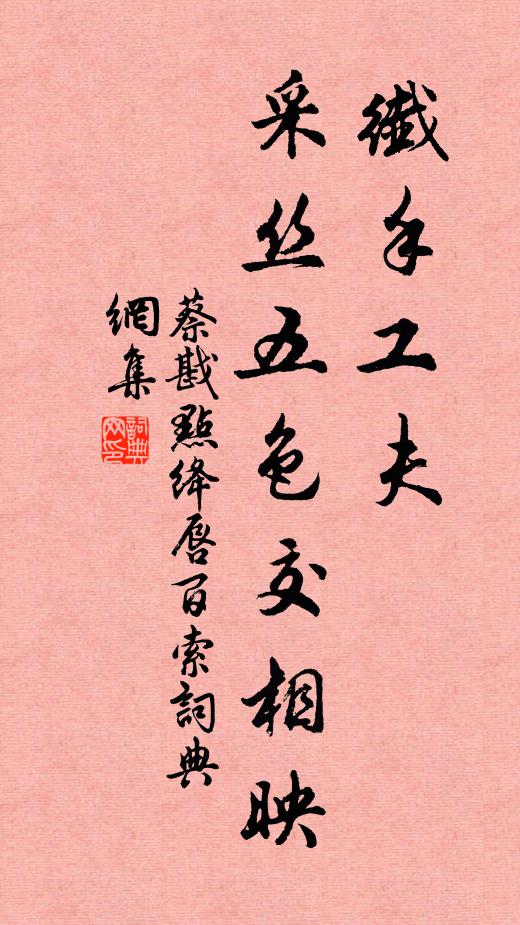 纖手工夫
采丝五色交相映
蔡戡點绛唇百索詞典
網集
詞典
网印